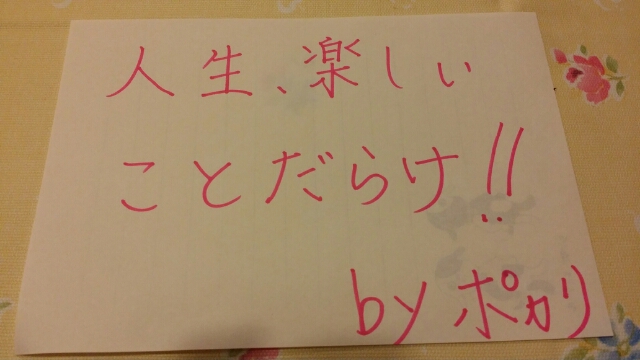 人生、楽しい
ことだらけ!!
by ポカリ